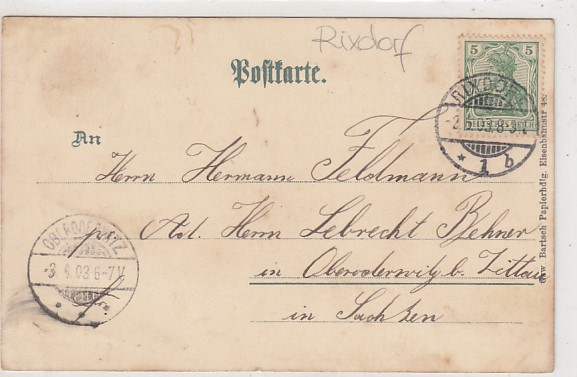 Rixdorf
Postkarte.
5 5
RIXDORF
03.8-9N
* 1 b
An
Herrn Hermann Feldmann
p. Ad. Herrn Lebrecht Behner
in Oberoderwitz b. Zittau
in Sachsen
OBERODERWITZ
-3. 6.03 6-7V
Bartsch Papierhdlg. Eisenbahnstr